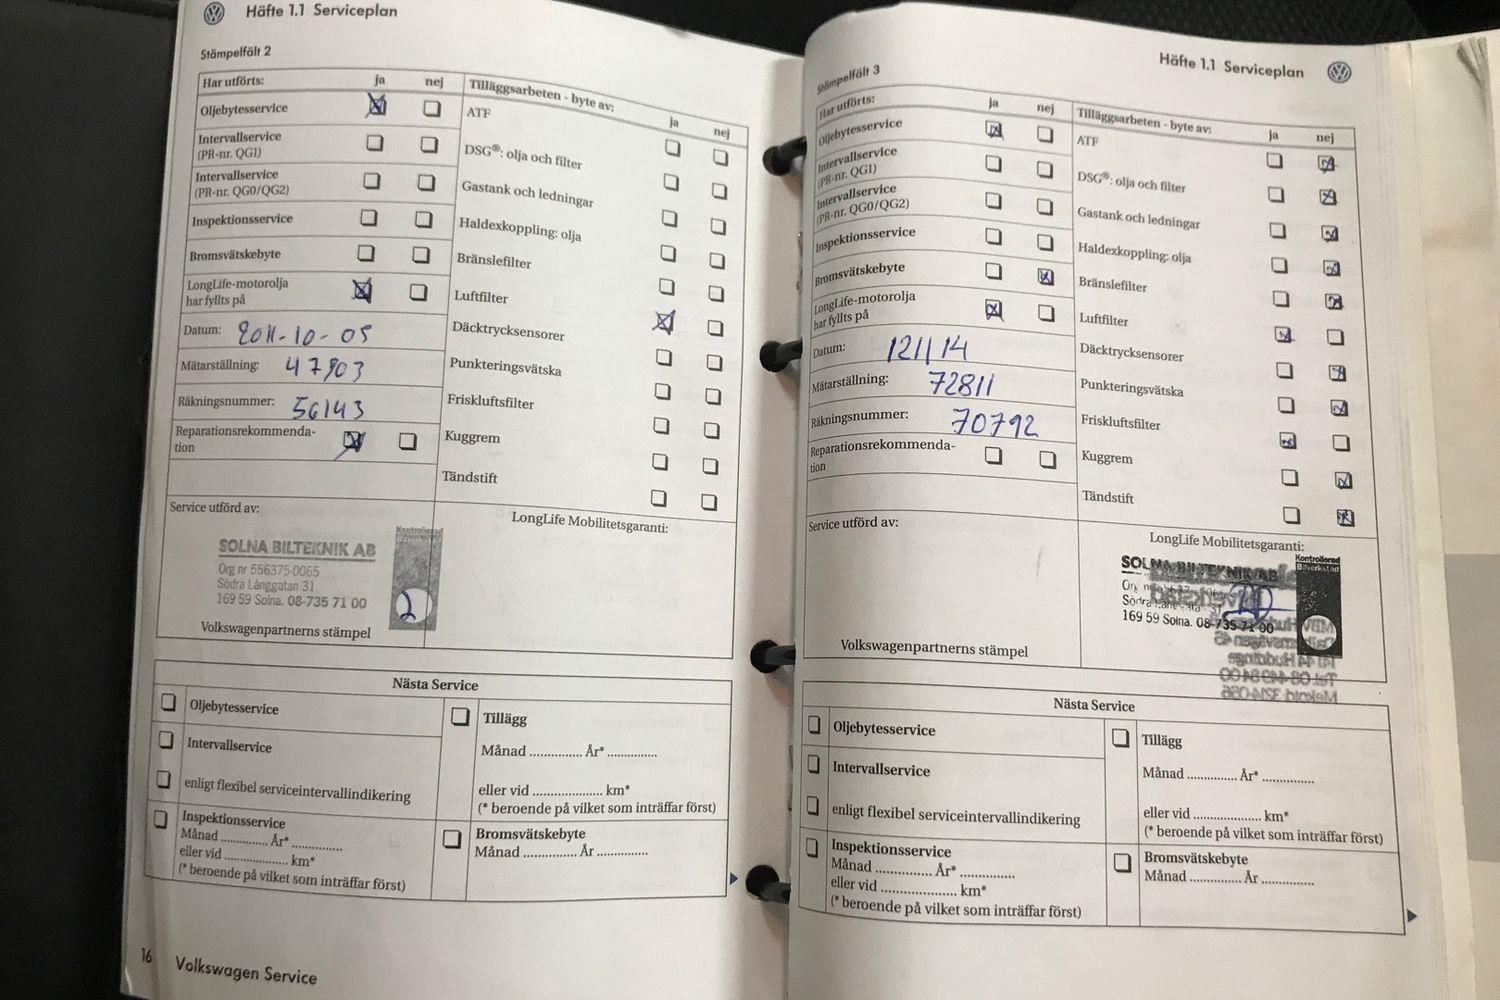 Häfte 1.1 Serviceplan
Stämpelfält 2
Har utförts: ja nej
Oljebytesservice
Intervallservice
(PR-nr. QG1)
Intervallservice
(PR-nr. QG0/QG2)
Inspektionsservice
Bromsvätskebyte
LongLife-motorolja
har fyllts på
Datum: 2011-10-05
Mätarställning: 47903
Räkningsnummer: 56143
Reparationsrekommenda-
tion
Tilläggsarbeten - byte av:
ja nej
ATF
DSG®: olja och filter
Gastank och ledningar
Haldexkoppling: olja
Bränslefilter
Luftfilter
Däcktrycksensorer
Punkteringsvätska
Friskluftsfilter
Kuggrem
Tändstift
Service utförd av:
SOLNA BILTEKNIK AB
Org nr 556375-0065
Södra Långgatan 31
169 59 Solna. 08-735 71 00
Kontrollerad
Bilverkstad
2
Volkswagenpartnerns stämpel
LongLife Mobilitetsgaranti:
Nästa Service
Oljebytesservice
Intervallservice
enligt flexibel serviceintervallindikering
Inspektionsservice
Månad .............. År* ..............
eller vid .................... km*
(* beroende på vilket som inträffar först)
Tillägg
Månad .............. År* ..............
eller vid .................... km*
(* beroende på vilket som inträffar först)
Bromsvätskebyte
Månad .............. År ..............
16 Volkswagen Service
Häfte 1.1 Serviceplan
Stämpelfält 3
Har utförts: ja nej
Oljebytesservice
Intervallservice
(PR-nr. QG1)
Intervallservice
(PR-nr. QG0/QG2)
Inspektionsservice
Bromsvätskebyte
LongLife-motorolja
har fyllts på
Datum: 121114
Mätarställning: 72811
Räkningsnummer: 70792
Reparationsrekommenda-
tion
Tilläggsarbeten - byte av: ja nej
ATF
DSG®: olja och filter
Gastank och ledningar
Haldexkoppling: olja
Bränslefilter
Luftfilter
Däcktrycksensorer
Punkteringsvätska
Friskluftsfilter
Kuggrem
Tändstift
Service utförd av:
Volkswagenpartnerns stämpel
LongLife Mobilitetsgaranti:
SOLNA BILTEKNIK AB
169 59 Solna. 08-735 71 00
Kontrollerad
Bilverkstad
Nästa Service
Oljebytesservice
Intervallservice
enligt flexibel serviceintervallindikering
Inspektionsservice
Månad .............. År* ..............
eller vid .................... km*
(* beroende på vilket som inträffar först)
Tillägg
Månad .............. År* ..............
eller vid .................... km*
(* beroende på vilket som inträffar först)
Bromsvätskebyte
Månad .............. År ..............